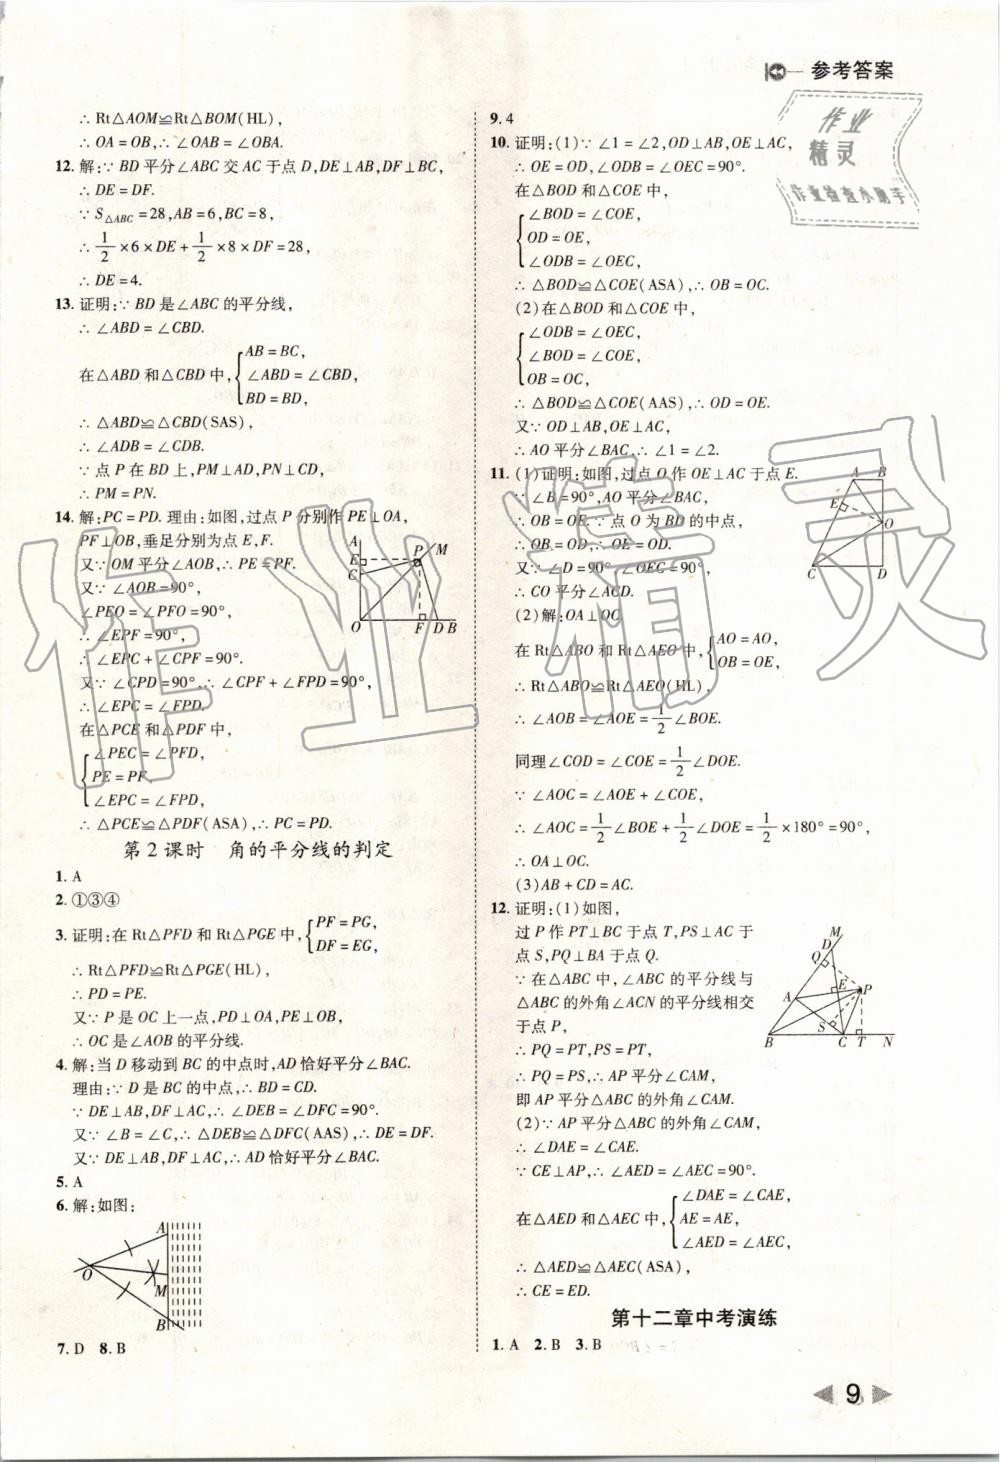 参考答案
∴ Rt△AOM≌Rt△BOM(HL),
∴ OA = OB,∴ ∠OAB = ∠OBA.
12. 解:∵ BD 平分∠ABC 交 AC 于点 D,DE⊥AB,DF⊥BC,
∴ DE = DF.
∵ S△ABC = 28,AB = 6,BC = 8,
∴ 1/2 ×6×DE + 1/2 ×8×DF = 28,
∴ DE = 4.
13. 证明:∵ BD 是∠ABC 的平分线,
∴ ∠ABD = ∠CBD.
在△ABD 和△CBD 中, { AB = BC,
∠ABD = ∠CBD,
BD = BD,
∴ △ABD≌△CBD(SAS),
∴ ∠ADB = ∠CDB.
∵ 点 P 在 BD 上,PM⊥AD,PN⊥CD,
∴ PM = PN.
14. 解:PC = PD. 理由:如图,过点 P 分别作 PE⊥OA,
PF⊥OB,垂足分别为点 E,F.
又∵ OM 平分∠AOB,∴ PE = PF.
又∵ ∠AOB = 90°,
∠PEO = ∠PFO = 90°,
∴ ∠EPF = 90°,
∴ ∠EPC + ∠CPF = 90°.
又∵ ∠CPD = 90°,∴ ∠CPF + ∠FPD = 90°,
∴ ∠EPC = ∠FPD.
在△PCE 和△PDF 中,
{ ∠PEC = ∠PFD,
PE = PF,
∠EPC = ∠FPD,
∴ △PCE≌△PDF(ASA),∴ PC = PD.
A
M
E
P
C
O
F D B
第 2 课时 角的平分线的判定
1. A
2. ①③④
3. 证明:在 Rt△PFD 和 Rt△PGE 中, { PF = PG,
DF = EG,
∴ Rt△PFD≌Rt△PGE(HL),
∴ PD = PE.
又∵ P 是 OC 上一点,PD⊥OA,PE⊥OB,
∴ OC 是∠AOB 的平分线.
4. 解:当 D 移动到 BC 的中点时,AD 恰好平分∠BAC.
理由:∵ D 是 BC 的中点,∴ BD = CD.
∵ DE⊥AB,DF⊥AC,∴ ∠DEB = ∠DFC = 90°.
又∵ ∠B = ∠C,∴ △DEB≌△DFC(AAS),∴ DE = DF.
又∵ DE⊥AB,DF⊥AC,∴ AD 恰好平分∠BAC.
5. A
6. 解:如图:
A
O
M
B
7. D 8. B
9. 4
10. 证明:(1)∵ ∠1 = ∠2,OD⊥AB,OE⊥AC,
∴ OE = OD,∠ODB = ∠OEC = 90°.
在△BOD 和△COE 中,
{ ∠BOD = ∠COE,
OD = OE,
∠ODB = ∠OEC,
∴ △BOD≌△COE(ASA),∴ OB = OC.
(2)在△BOD 和△COE 中,
{ ∠ODB = ∠OEC,
∠BOD = ∠COE,
OB = OC,
∴ △BOD≌△COE(AAS),∴ OD = OE.
又∵ OD⊥AB,OE⊥AC,
∴ AO 平分∠BAC,∴ ∠1 = ∠2.
11. (1)证明:如图,过点 O 作 OE⊥AC 于点 E.
∵ ∠B = 90°,AO 平分∠BAC,
∴ OB = OE.∵ 点 O 为 BD 的中点,
∴ OB = OD,∴ OE = OD.
又∵ ∠D = 90°,∠OEC = 90°,
∴ CO 平分∠ACD.
(2)解:OA⊥OC.
在 Rt△ABO 和 Rt△AEO 中, { AO = AO,
OB = OE,
∴ Rt△ABO≌Rt△AEO(HL),
∴ ∠AOB = ∠AOE = 1/2 ∠BOE.
同理∠COD = ∠COE = 1/2 ∠DOE.
∵ ∠AOC = ∠AOE + ∠COE,
∴ ∠AOC = 1/2 ∠BOE + 1/2 ∠DOE = 1/2 ×180° = 90°,
∴ OA⊥OC.
(3)AB + CD = AC.
A B
E
O
C
D
12. 证明:(1)如图,
过 P 作 PT⊥BC 于点 T,PS⊥AC 于
点 S,PQ⊥BA 于点 Q.
∵ 在△ABC 中,∠ABC 的平分线与
△ABC 的外角∠ACN 的平分线相交
于点 P,
∴ PQ = PT,PS = PT,
∴ PQ = PS,∴ AP 平分∠CAM,
即 AP 平分△ABC 的外角∠CAM.
(2)∵ AP 平分△ABC 的外角∠CAM,
∴ ∠DAE = ∠CAE.
∵ CE⊥AP,∴ ∠AED = ∠AEC = 90°.
在△AED 和△AEC 中, { ∠DAE = ∠CAE,
AE = AE,
∠AED = ∠AEC,
∴ △AED≌△AEC(ASA),
∴ CE = ED.
M
D
Q
E
P
A
S
B C T N
第十二章中考演练
1. A 2. B 3. B
9
作业
精灵
作业检查小助手
作业精灵